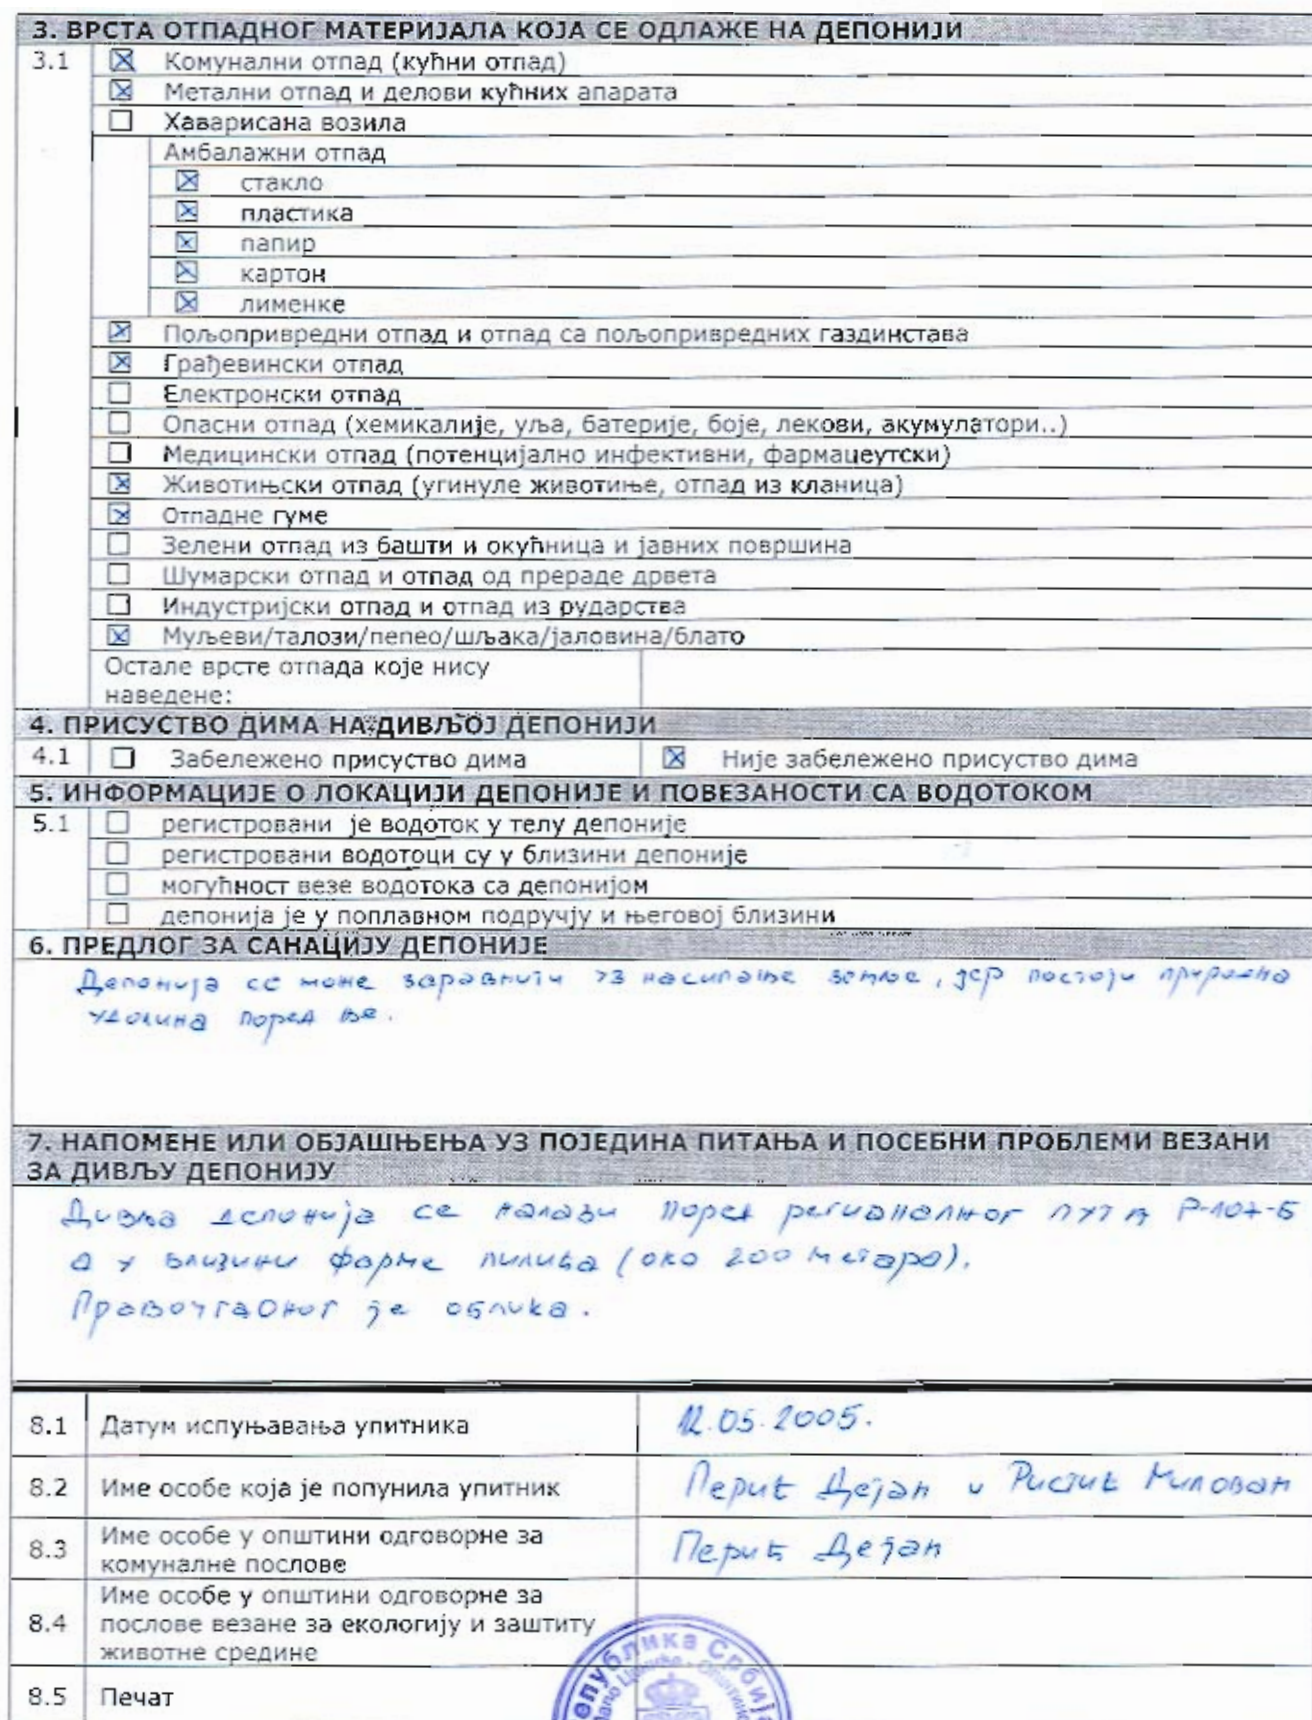 3. ВРСТА ОТПАДНОГ МАТЕРИЈАЛА КОЈА СЕ ОДЛАЖЕ НА ДЕПОНИЈИ
3.1 ☒ Комунални отпад (кућни отпад)
☒ Метални отпад и делови кућних апарата
☐ Хаварисана возила
Амбалажни отпад
☒ стакло
☒ пластика
☒ папир
☒ картон
☒ лименке
☒ Пољопривредни отпад и отпад са пољопривредних газдинстава
☒ Грађевински отпад
☐ Електронски отпад
☐ Опасни отпад (хемикалије, уља, батерије, боје, лекови, акумулатори..)
☐ Медицински отпад (потенцијално инфективни, фармацеутски)
☒ Животињски отпад (угинуле животиње, отпад из кланица)
☒ Отпадне гуме
☐ Зелени отпад из башти и окућница и јавних површина
☐ Шумарски отпад и отпад од прераде дрвета
☐ Индустријски отпад и отпад из рударства
☒ Муљеви/талози/пепео/шљака/јаловина/блато
Остале врсте отпада које нису
наведене:
4. ПРИСУСТВО ДИМА НА ДИВЉОЈ ДЕПОНИЈИ
4.1 ☐ Забележено присуство дима ☒ Није забележено присуство дима
5. ИНФОРМАЦИЈЕ О ЛОКАЦИЈИ ДЕПОНИЈЕ И ПОВЕЗАНОСТИ СА ВОДОТОКОМ
5.1 ☐ регистровани је водоток у телу депоније
☐ регистровани водотоци су у близини депоније
☐ могућност везе водотока са депонијом
☐ депонија је у поплавном подручју и његовој близини
6. ПРЕДЛОГ ЗА САНАЦИЈУ ДЕПОНИЈЕ
Депонија се може заравнити уз насипање земље, јер постоји природна
удолина поред ње.
7. НАПОМЕНЕ ИЛИ ОБЈАШЊЕЊА УЗ ПОЈЕДИНА ПИТАЊА И ПОСЕБНИ ПРОБЛЕМИ ВЕЗАНИ
ЗА ДИВЉУ ДЕПОНИЈУ
Дивља депонија се налази поред регионалног пута Р-107-Б
а у близини фарме пилића (око 200 метара).
Правоугаоног је облика.
8.1 Датум испуњавања упитника 12.05.2005.
8.2 Име особе која је попунила упитник Перић Дејан и Ристић Милован
8.3 Име особе у општини одговорне за
комуналне послове Перић Дејан
8.4 Име особе у општини одговорне за
послове везане за екологију и заштиту
животне средине
8.5 Печат
Република Србија